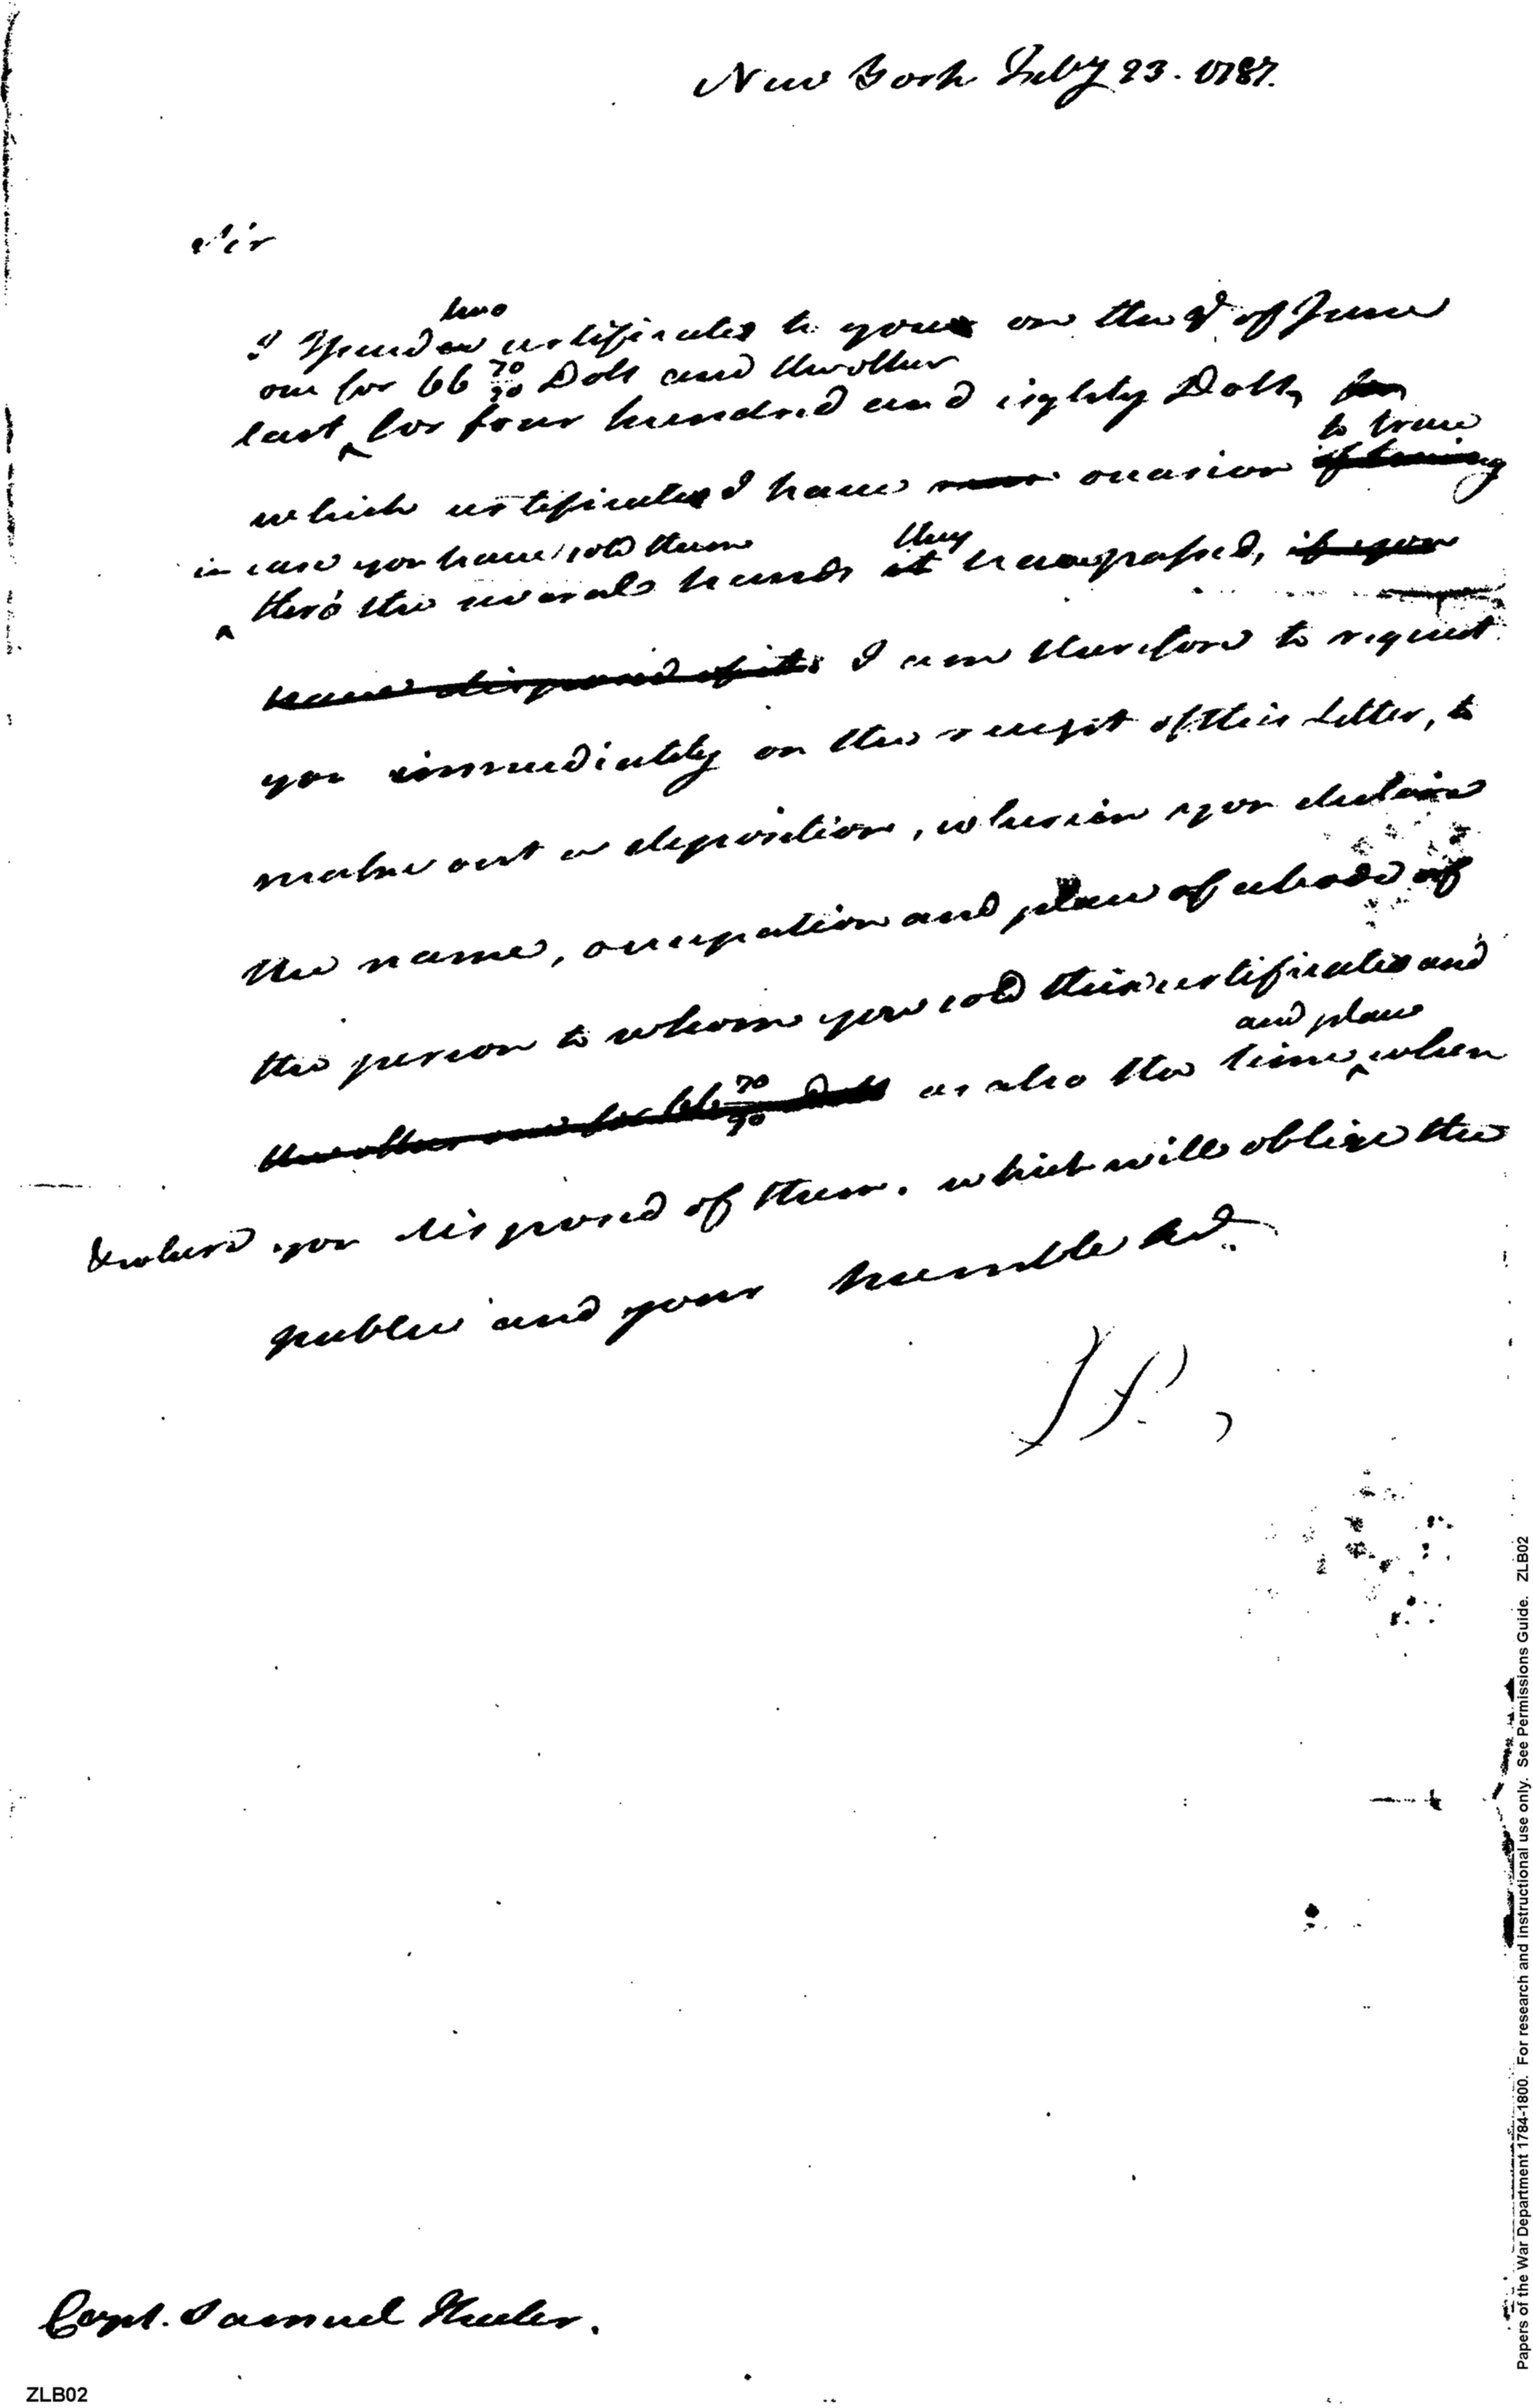 New York July 23. 1787.
Sir
two
I issued a certificates to you on the 9 of June
one for 66 70/90 Dolls and the other
last for four hundred and eighty Dolls, for
to trace
which certificates I have now occasion of tracing
in case you have sold them they
thro the several hands it have passed, if you
have disposed of it. I am therefore to request
you immediately on the receipt of this Letter, to
make out a deposition, wherein you declare
the name, occupation and place of abode of
the person to whom you sold these certificates and
and place
the other one for 66 70/90 Dolls as also the time when
& where you disposed of them. which will oblige the
public and your humble Svt.
Capt. Samuel
ZLB02
Papers of the War Department 1784-1800. For research and instructional use only. See Permissions Guide. ZLB02